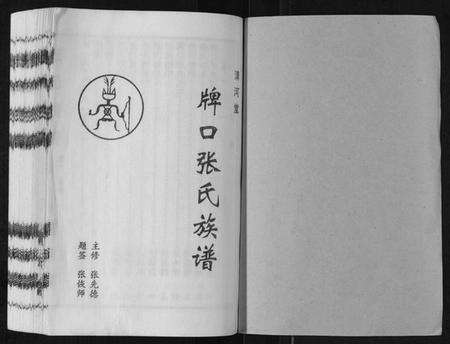 清河堂
牌口张氏族谱
主修 张先德
题签 张俊师